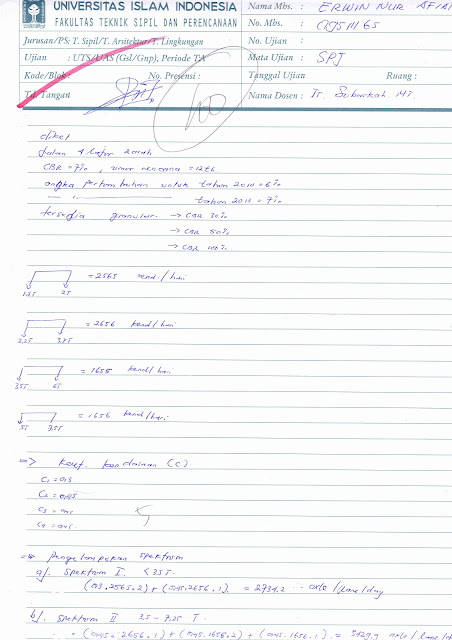 UNIVERSITAS ISLAM INDONESIA
FAKULTAS TEKNIK SIPIL DAN PERENCANAAN
Nama Mhs. : ERWIN NUR AFIA
No. Mhs. : 0951165
Jurusan/PS: T. Sipil/T. Arsitektur/T. Lingkungan
No. Ujian :
Ujian : UTS/UAS (Gsl/Gnp), Periode TA
Mata Ujian : SPJ
Kode/Blok : No. Presensi :
Tanggal Ujian Ruang :
Td. Tangan
Nama Dosen : Ir. Subarkah. MT.
100
diket
Jalan 4 lajur 2 arah
CBR = 7%, umur rencana = 12 th
angka pertumbuhan untuk tahun 2010 = 6%
tahun 2010 = 7%
tersedia granular. → CBR 30%
→ CBR 50%
→ CBR 100%
= 2565 kend/hari
1.5T 2T
= 2656 kend/hari
= 1655 kend/hari
3.5T 6T
= 1656 kend/hari
5T
=> Koef. kendaraan (C)
C1 = 0.3
C2 = 0.45
C3 = 0.45
C4 = 0.45
=> Pengelompokan spektrum
a/. Spektrum I. < 3.5 T.
(0.3.2565.2) + (0.45.2656.1) = 2734.2 axle/lane/day
b/. Spektrum II 3.5 - 7.25 T.
= (0.45 × 2656.1) + (0.45.1655.2) + (0.45.1656.1). = 3429.9 axle/lane/da